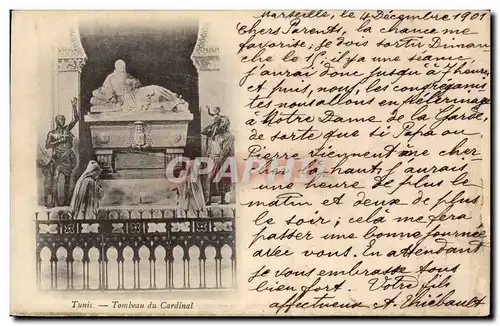 Marseille, le 4 Décembre 1901
Chers Parents, la chance me
favorise, je dois sortir Diman
che le 15, il y a une séance
j'aurai donc jusqu'à 7 heures
et puis, nous, les congréganis
tes nous allons en pélerinage
à Notre Dame de la Garde,
de sorte que si Papa ou
Pierre viennent me cher
cher là haut, j'aurais
une heure de plus le
matin et deux de plus
le soir ; cela me fera
passer une bonne journée
avec vous. En attendant
je vous embrasse tous
bien fort. Votre fils
affectueux A. Thiébault
Tunis. — Tombeau du Cardinal
CPA